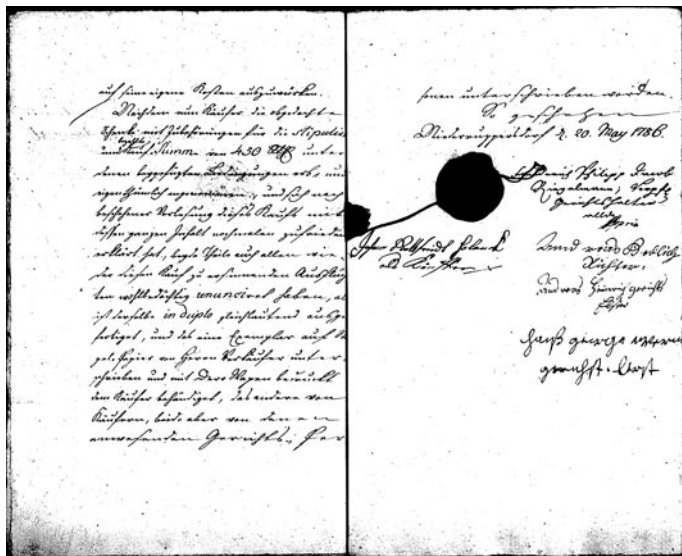 auf seine eigene Kosten auszuwürken.
Nachdem nun Käufer die obgedachte
Schenke mit Zubehörungen für die stipulirte
Kauf-Summe von 430 unter
denen beygefügten Bedingungen erb- und
eigenthümlich angenommen, und sich nach
beschehener Verlesung dieses Kaufs mit
dessen ganzen Inhalt nochmalen zufrieden
erklärt hat, beyde Theile auch allen wie-
der diesen Kauf zu ersinnenden Ausflüch-
ten wohlbedächtig renunciret haben, als
ist derselbe in duplo gleichlautend ausge-
fertiget, und das eine Exemplar auf
Papier von Herrn Verkäufer unter-
schrieben und mit Dero Wapen bedruckt
dem Käufer behändiget, das andere von
Käufern, beide aber von denen
anwesenden Gerichts- Per
sonen unterschrieben worden.
So geschehen
Niederruppersdorf d. 20. May 1786.
Philipp Jacob
Gerichtshalter
Gottfried
als Käufer
Richter
Hanß George
gerichst